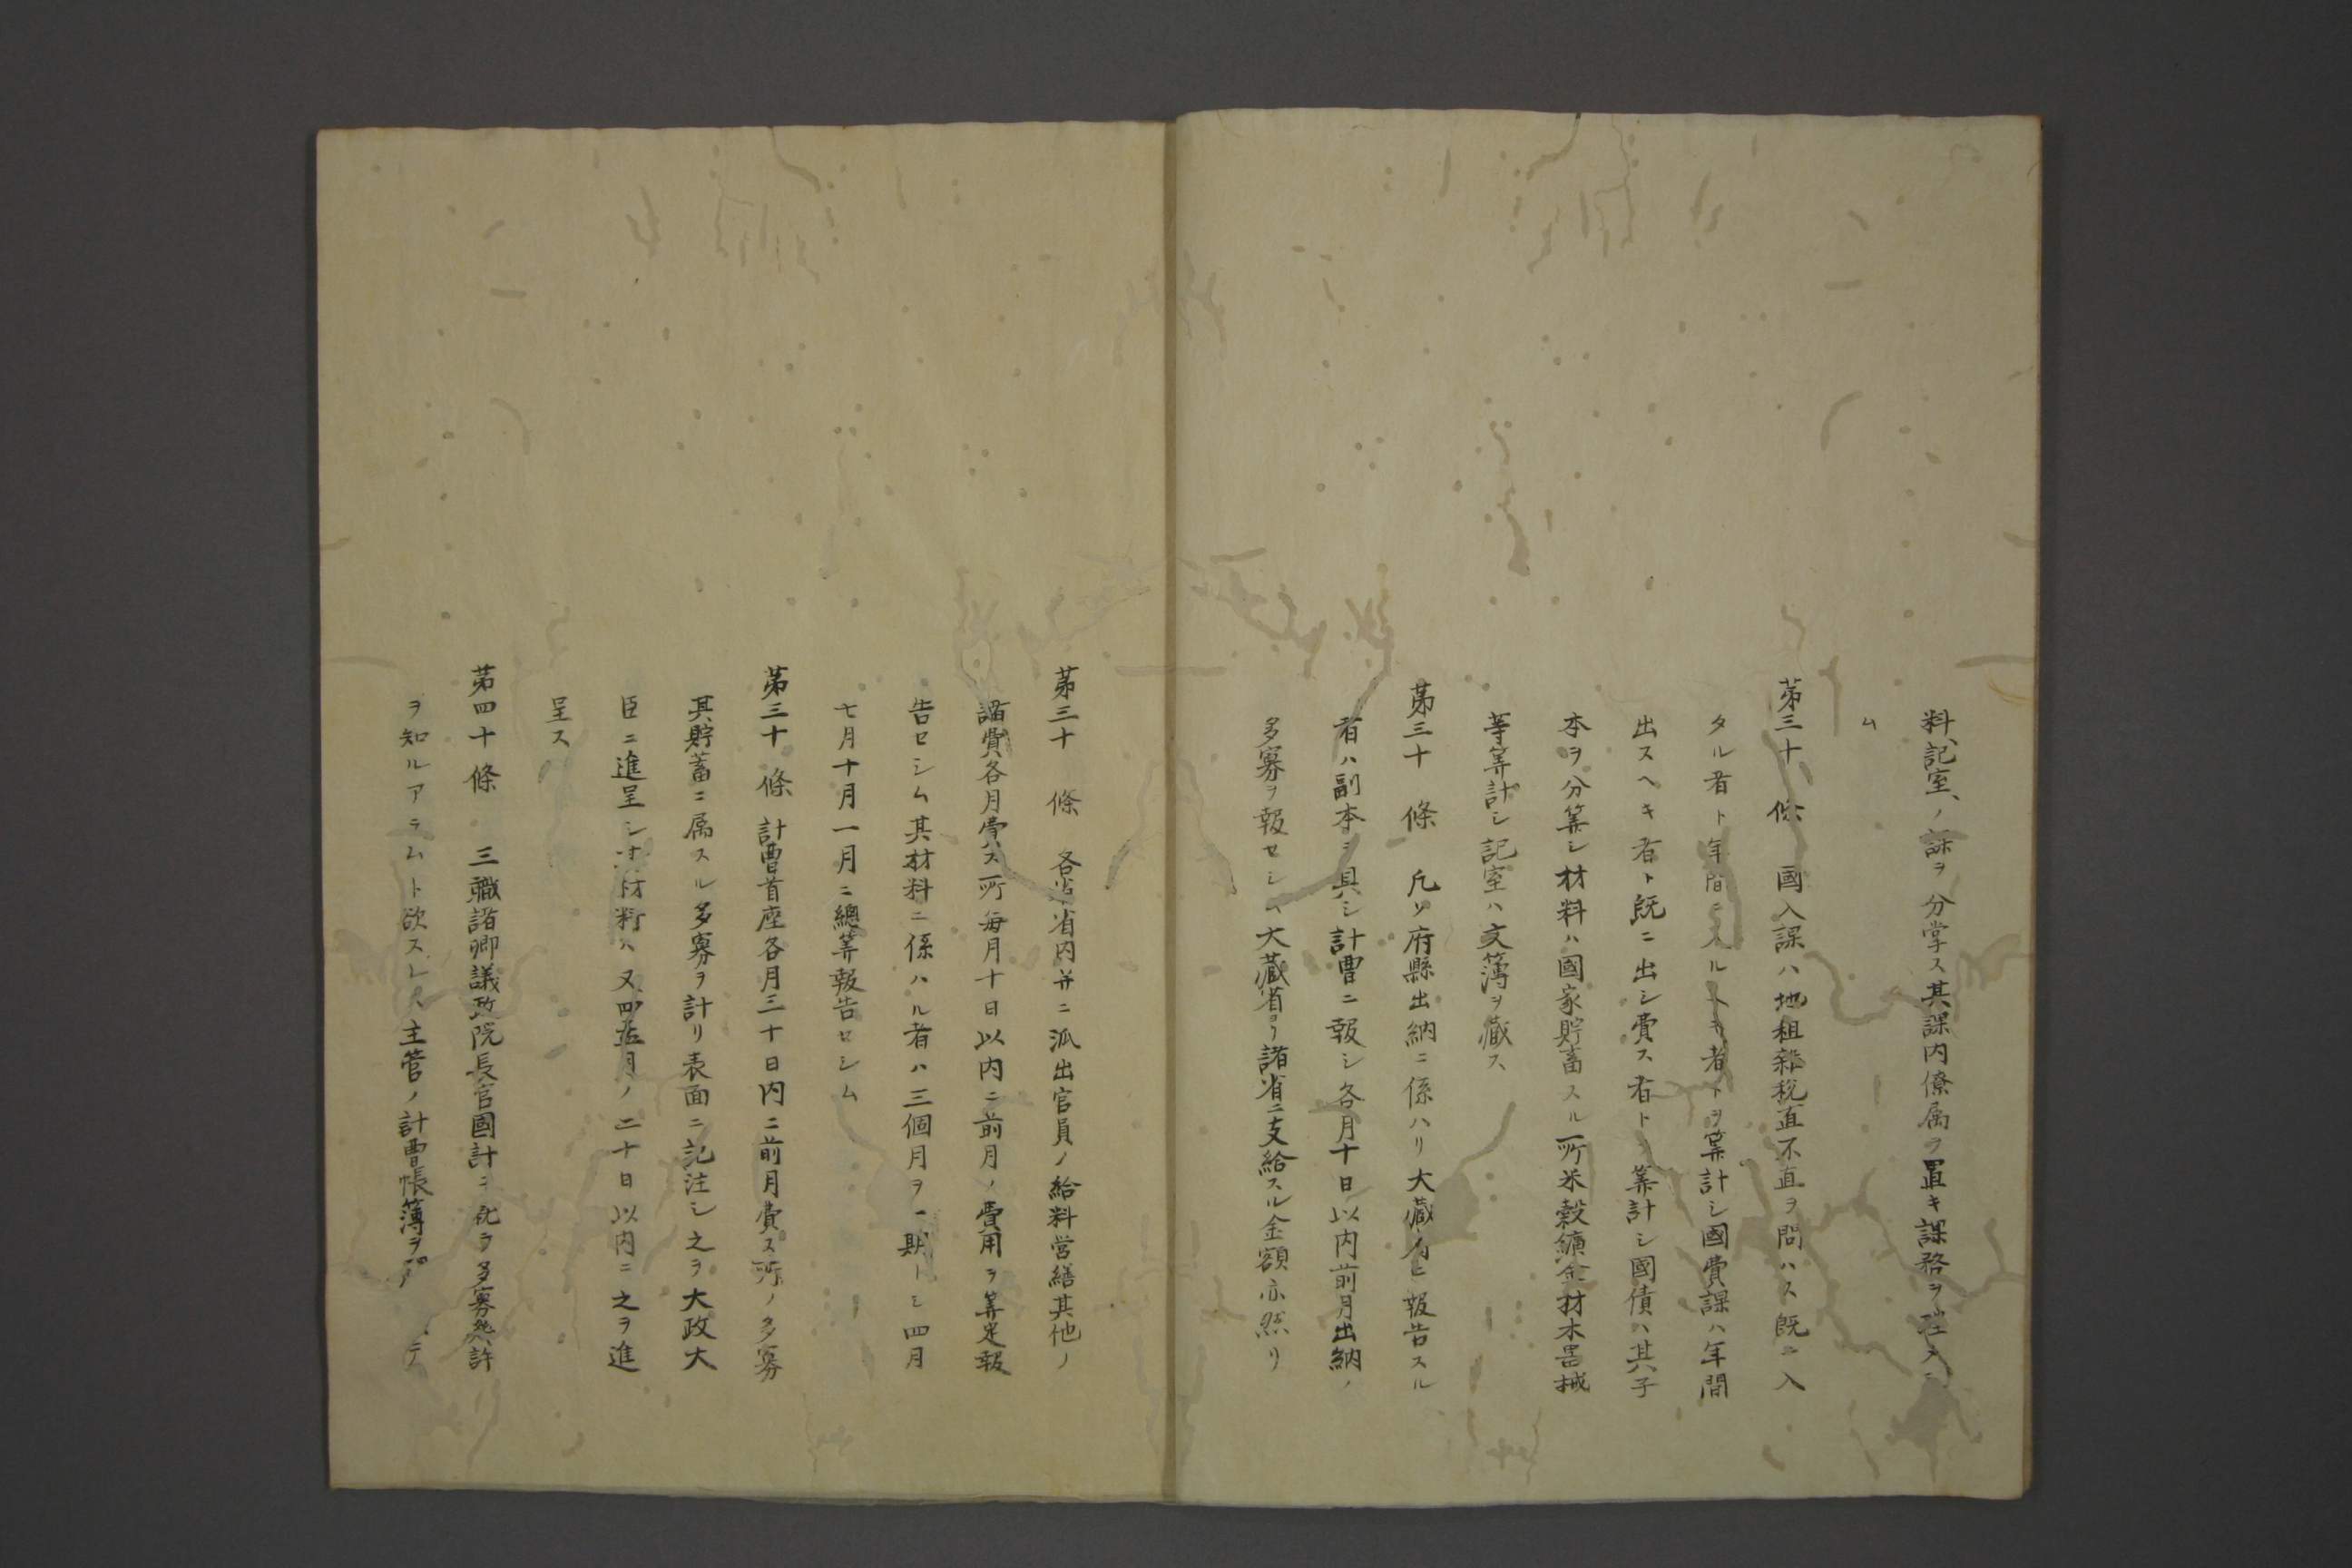 料、記室、ノ課ヲ分掌ス其課内僚属ヲ置キ課務ヲ
ム
第三十　條　國入課ハ地租雜税直不直ヲ問ハス既ニ入
タル者ト年間ニ入ルヘキ者トヲ筭計シ國費課ハ年間
出スヘキ者ト既ニ出シ費ス者トヲ筭計シ國債ハ其子
本ヲ分筭シ材料ハ國家貯蓄スル所米穀纊金材木噐械
等筭計シ記室ハ文簿ヲ蔵ス
第三十　條　凡ソ府縣出納ニ係ハリ大藏省ヒ報告スル
者ハ副本ヲ具シ計曹ニ報シ各月十日以内前月出納ノ
多寡ヲ報セシム大藏省ヨリ諸省ニ支給スル金額亦然リ
第三十　條　各省省内并ニ派出官員ノ給料営繕其他ノ
諸費各月費ス所毎月十日以内ニ前月ノ費用ヲ筭定報
告セシム其材料ニ係ハル者ハ三個月ヲ一期トシ四月
七月十月一月ニ總筭報告セシム
第三十　條　計曹首座各月三十日内ニ前月費ス所ノ多寡
其貯蓄ニ属スル多寡ヲ計リ表面ニ記注シ之ヲ大政大
臣ニ進呈シ其材料ハ又四孟月ノ二十日以内ニ之ヲ進
呈ス
第四十　條　三職諸卿議政院長官國計ニ就ラ多寡然許
ヲ知ルアラムト欲スレハ主管ノ計曹帳簿ヲ